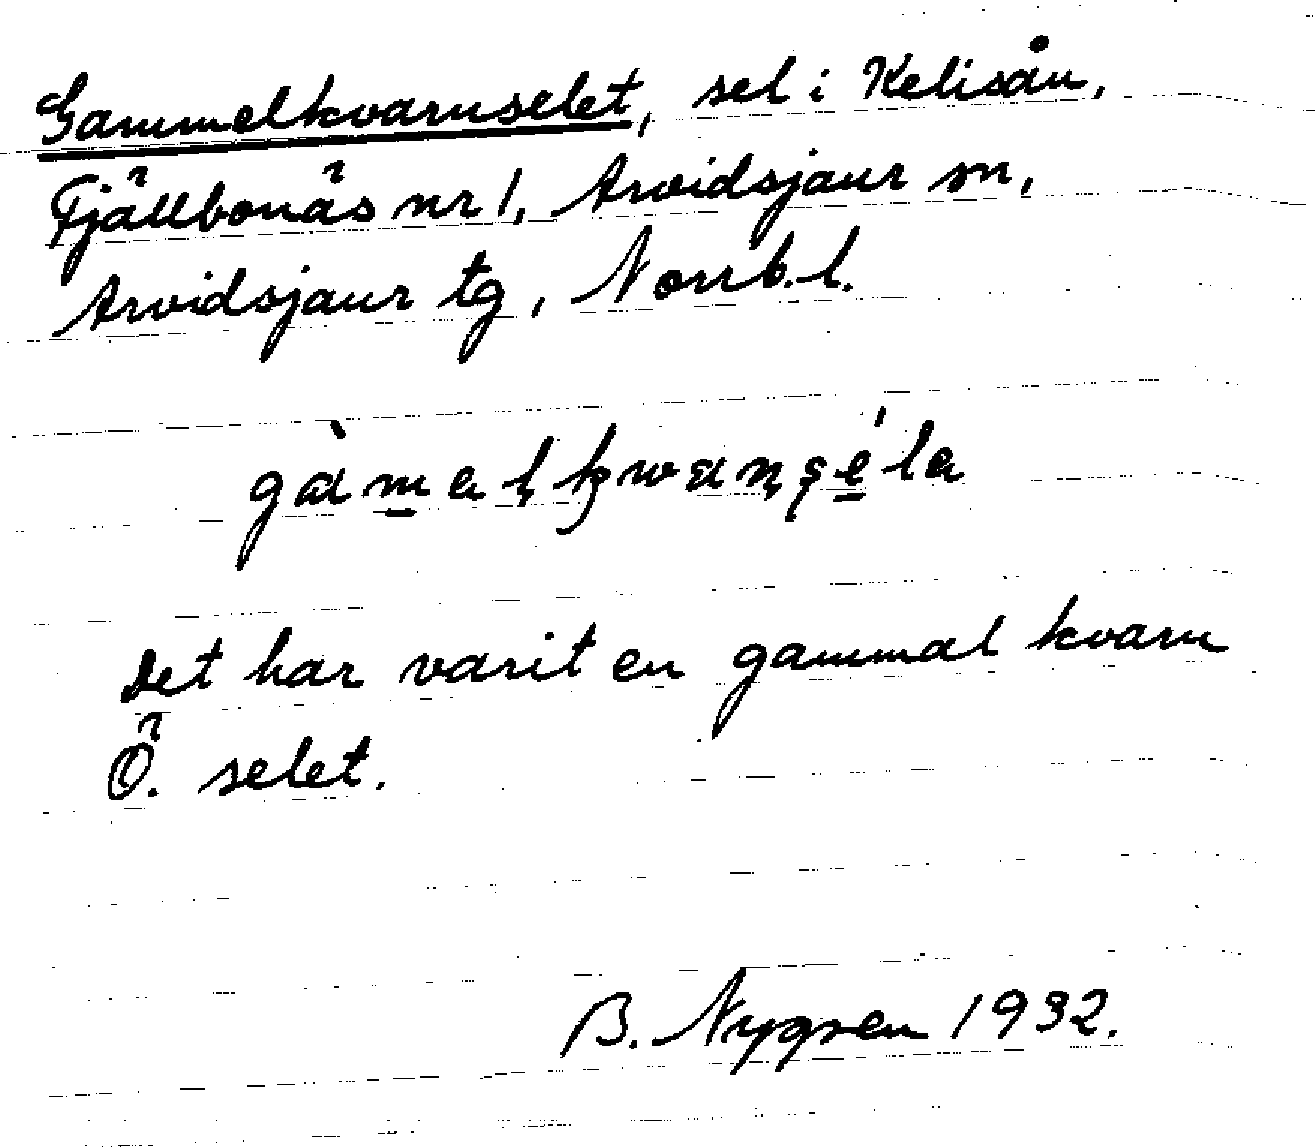 Gammelkvarnselet, sel i Kelisån,
Fjällbonäs nr 1, Arvidsjaur sn,
Arvidsjaur tg, Norrb. l.
gàmalkwanséla
Det har varit en gammal kvarn
Ö. selet.
B. Nygren 1932.